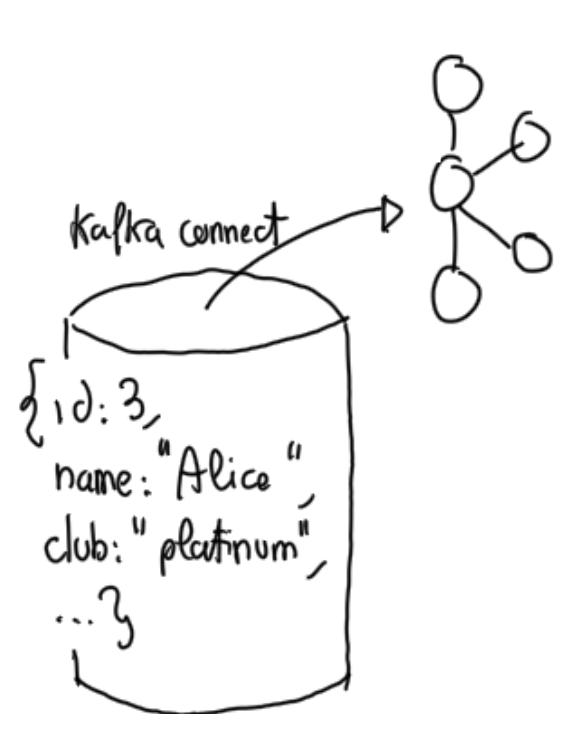 kafka connect
{id: 3,
name: "Alice",
club: "platinum",
...}